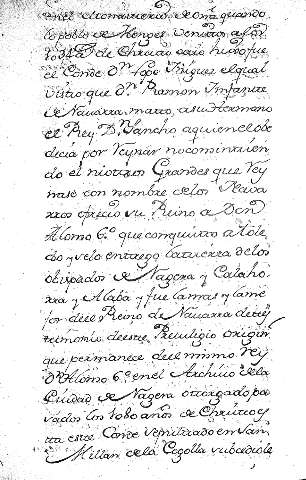 en el
de Christo
el Conde Dn. Lope Iñiguez el qual
visto que Dn. Ramon Infante
de Navarra, mato, a su Hermano
el Rey Dn. Sancho, a quien el obe
decia por Reynar no consintien
do el ni otros Grandes que Rey
nase con nombre de los Nava
rros ofrecio su Reino a Don
Alonso 6º. que conquisto a Tole
do y se lo entrego la tierra de los
obispados de Nagera y Calaho
rra y Alaba y fue la mas y la me
jor de el Reino de Navarra de
este Previlegio origin
que permanece de el mismo Rey
Dn. Alonso 6º. en el Archivo de la
Ciudad de Nagera otorgado pa
sados los 1080 años de Christo es
ta este Conde sepultado en San
Millan de la Cogolla